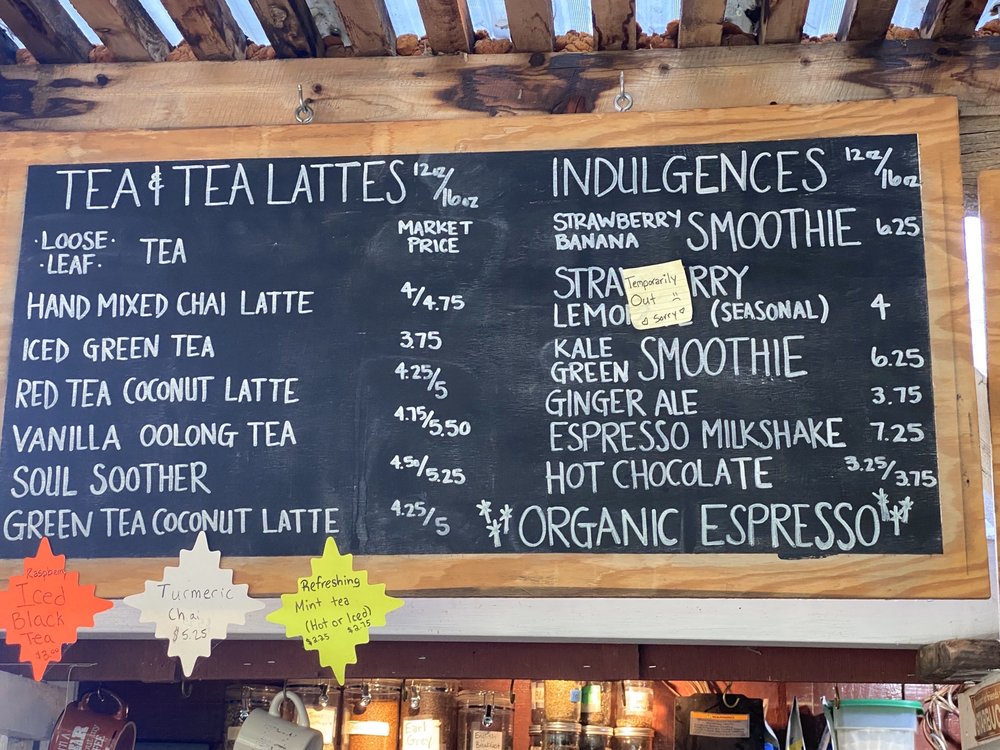 TEA & TEA LATTES 12oz/16oz
·LOOSE· ·LEAF· TEA MARKET PRICE
HAND MIXED CHAI LATTE 4/4.75
ICED GREEN TEA 3.75
RED TEA COCONUT LATTE 4.25/5
VANILLA OOLONG TEA 4.75/5.50
SOUL SOOTHER 4.50/5.25
GREEN TEA COCONUT LATTE 4.25/5
INDULGENCES 12oz/16oz
STRAWBERRY BANANA SMOOTHIE 6.25
STRA RRY
LEMO (SEASONAL) 4
Temporarily
Out
Sorry
KALE GREEN SMOOTHIE 6.25
GINGER ALE 3.75
ESPRESSO MILKSHAKE 7.25
HOT CHOCOLATE 3.25/3.75
ORGANIC ESPRESSO
Raspberry
Iced
Black
Tea
$3.00
Turmeric
Chai
$5.25
Refreshing
Mint tea
(Hot or Iced)
$2.25 $2.75
Earl
Grey
Breakfast